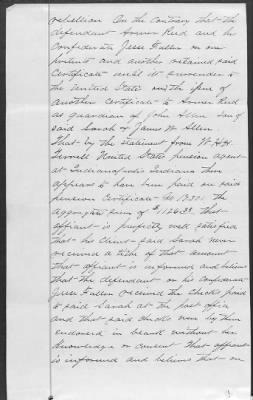 rebellion On the Contrary that the
defendant Abner Reed and his
Confederate Jesse Fallen on one
pretense and another retained said
Certificate until its surrender to
the United States and the issue of
another Certificate to Abner Reed
as guardian of John Allen son of
said Sarah & James W Allen.
That by the statement from W. H. H.
Terrell United States pension agent
at Indianapolis Indiana there
appears to have been paid on said
pension Certificate No the
aggregate sum of $1126.33 that
affiant is perfectly well satisfied
that his Client said Sarah never
received a tithe of that amount
that affiant is informed and believes
that the defendant or his Confederate
Jesse Fallen received the checks paid
to said Sarah at the post office
and that said checks were by them
endorsed in blank without her
Knowledge or consent that affiant
is informed and believes that on